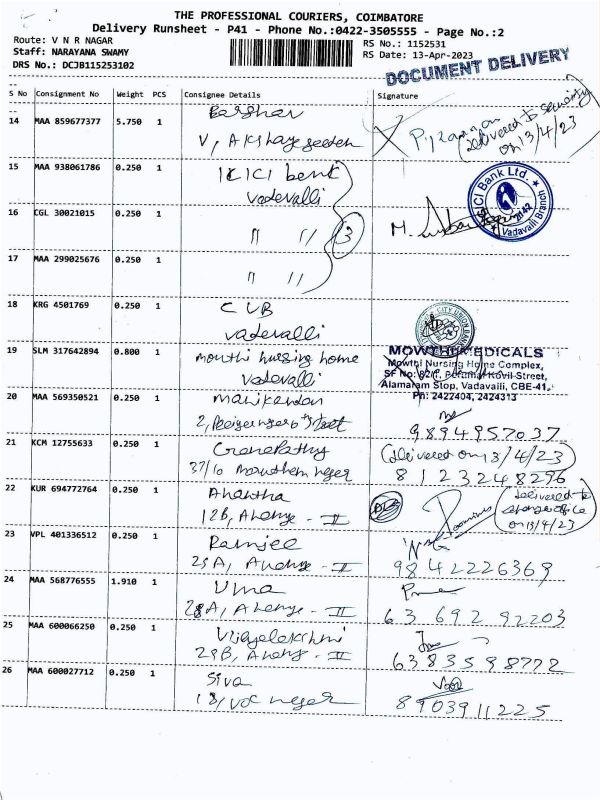 THE PROFESSIONAL COURIERS, COIMBATORE
Delivery Runsheet - P41 - Phone No.:0422-3505555 - Page No.:2
Route: V N R NAGAR
RS No.: 1152531
Staff: NARAYANA SWAMY
RS Date: 13-Apr-2023
DRS No.: DCJB115253102
DOCUMENT DELIVERY
S No Consignment No Weight PCS Consignee Details Signature
14 MAA 859677377 5.750 1
delivered to security
on 13/4/23
15 MAA 938061786 0.250 1 ICICI bank
Vadavalli
ICICI Bank Ltd.
Vadavalli Branch
16 CGL 30021015 0.250 1 " " 3
17 MAA 299025676 0.250 1
" "
18 KRG 4501769 0.250 1 CUB
Vadavalli
CITY UNION BANK
19 SLM 317642894 0.800 1 mowthi nursing home
Vadavalli
MOWTHI MEDICALS
Mowthi Nursing Home Complex,
SF No: Perumal Kovil Street,
Alamaram Stop, Vadavalli, CBE-41,
Ph: 2422404, 2424313
20 MAA 569350521 0.250 1 manikandan
2, street
9894957037
21 KCM 12755633 0.250 1
37/10 nager
delivered on 13/4/23
8123248296
22 KUR 694772764 0.250 1 Anantha
12B, - II
delivered to
office
on 13/4/23
23 VPL 401336512 0.250 1 Ramjee
25A, - II
9842226369
24 MAA 568776555 1.910 1 Uma
28A, - II
63 692 92203
25 MAA 600066250 0.250 1 Vijayalakshmi
29B, - II
6383598772
26 MAA 600027712 0.250 1 Siva
18/ VOC nager
8903911225